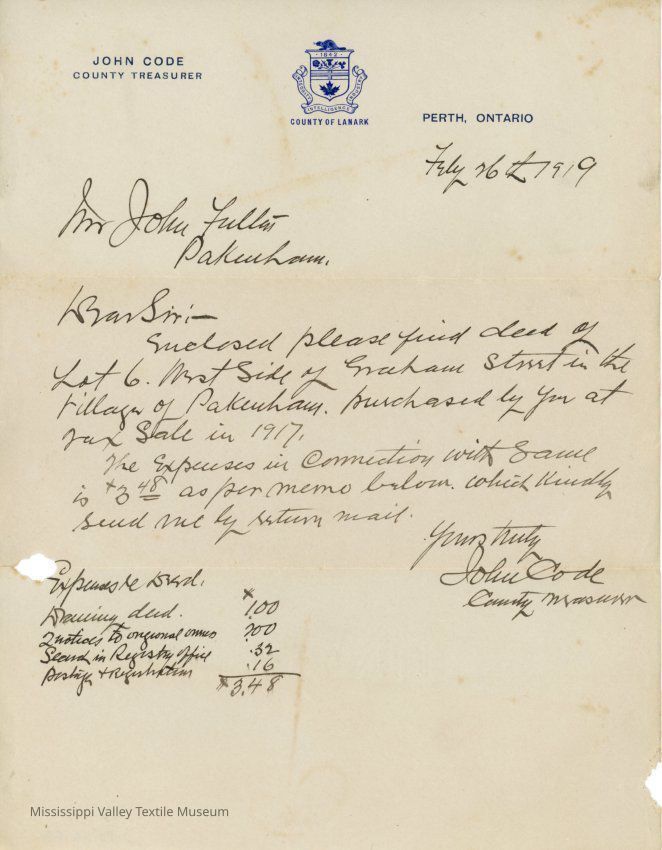 JOHN CODE
COUNTY TREASURER
1842
INTEGRITY INTELLIGENCE INDUSTRY
COUNTY OF LANARK
PERTH, ONTARIO
Feby 26th 1919
Mr John Fulton
Pakenham.
Dear Sir:-
Enclosed please find deed of
Lot 6. West Side of Graham Street in the
Village of Pakenham. purchased by you at
Tax Sale in 1917.
The Expenses in Connection with Same
is $3 48 as per memo below. which Kindly
send me by return mail.
Yours truly
John Code
County Treasurer
Expenses re Deed.
Drawing deed. $1.00
2 notices to original owner 2.00
Search in Registry office .32
Postage & Registration .16
$3.48
Mississippi Valley Textile Museum